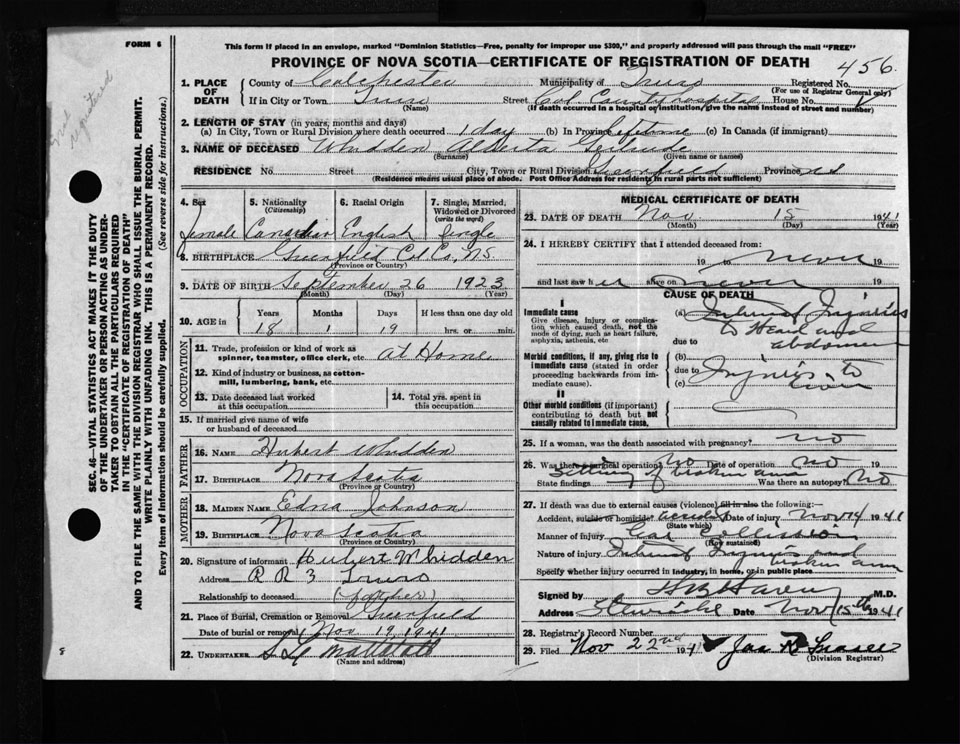 FORM 6
This form if placed in an envelope, marked "Dominion Statistics—Free, penalty for improper use $300," and properly addressed will pass through the mail "FREE"
PROVINCE OF NOVA SCOTIA—CERTIFICATE OF REGISTRATION OF DEATH
456
1. PLACE OF DEATH
County of Colchester Municipality of Truro Registered No.
(For use of Registrar General only)
If in City or Town Truro Street Col. County hospital House No.
(Name) (If death occurred in a hospital or institution, give its name instead of street and number)
2. LENGTH OF STAY (in years, months and days)
(a) In City, Town or Rural Division where death occurred 1 day (b) In Province lifetime (c) In Canada (if immigrant)
3. NAME OF DECEASED Whidden Alberta Gertrude
(Surname) (Given name or names)
RESIDENCE No. Street City, Town or Rural Division Greenfield Province N S
(Residence means usual place of abode. Post Office Address for residents in rural parts not sufficient)
4. Sex 5. Nationality (Citizenship) 6. Racial Origin 7. Single, Married, Widowed or Divorced (write the word)
female Canadian English Single
8. BIRTHPLACE Greenfield Col Co, N.S.
(Province or Country)
9. DATE OF BIRTH September 26 1923
(Month) (Day) (Year)
10. AGE in Years Months Days If less than one day old
18 1 19 hrs. or min.
OCCUPATION
11. Trade, profession or kind of work as spinner, teamster, office clerk, etc. At Home
12. Kind of industry or business, as cotton-mill, lumbering, bank, etc.
13. Date deceased last worked at this occupation
14. Total yrs. spent in this occupation
15. If married give name of wife or husband of deceased
FATHER
16. NAME Hubert Whidden
17. BIRTHPLACE Nova Scotia
(Province or Country)
MOTHER
18. MAIDEN NAME Edna Johnson
19. BIRTHPLACE Nova Scotia
(Province or Country)
20. Signature of informant Hubert Whidden
Address R R 3 Truro
Relationship to deceased (father)
21. Place of Burial, Cremation or Removal Greenfield
Date of burial or removal Nov 19 1941
22. UNDERTAKER
(Name and address)
MEDICAL CERTIFICATE OF DEATH
23. DATE OF DEATH Nov 15 1941
(Month) (Day) (Year)
24. I HEREBY CERTIFY that I attended deceased from:
19 to never 19
and last saw h er alive on never 19
CAUSE OF DEATH
I
Immediate cause
Give disease, injury or complication which caused death, not the mode of dying, such as heart failure, asphyxia, asthenia, etc
(a) Internal Injuries to Head and abdomen
due to
Morbid conditions, if any, giving rise to immediate cause (stated in order proceeding backwards from immediate cause).
(b)
due to Injuries to
(c)
II
Other morbid conditions (if important) contributing to death but not causally related to immediate cause.
25. If a woman, was the death associated with pregnancy? no
26. Was there a surgical operation? No Date of operation no 19
Setting of broken arm
State findings Was there an autopsy? No
27. If death was due to external causes (violence) fill in also the following:
Accident, suicide or homicide? accident Date of injury Nov 14 1941
(State which)
Manner of injury Car Collision
(How sustained)
Nature of injury Internal Injuries and broken arm
Specify whether injury occurred in industry, in home, or in public place
Signed by M.D.
Address Stewiacke Date Nov 15th 1941
28. Registrar's Record Number
29. Filed Nov 22nd 1941
(Division Registrar)
SEC. 46—VITAL STATISTICS ACT MAKES IT THE DUTY
OF THE UNDERTAKER OR PERSON ACTING AS UNDER-
TAKER TO OBTAIN ALL THE PARTICULARS REQUIRED
IN THE "CERTIFICATE OF REGISTRATION OF DEATH"
AND TO FILE THE SAME WITH THE DIVISION REGISTRAR WHO SHALL ISSUE THE BURIAL PERMIT.
WRITE PLAINLY WITH UNFADING INK. THIS IS A PERMANENT RECORD.
Every item of information should be carefully supplied. (See reverse side for instructions.)
8